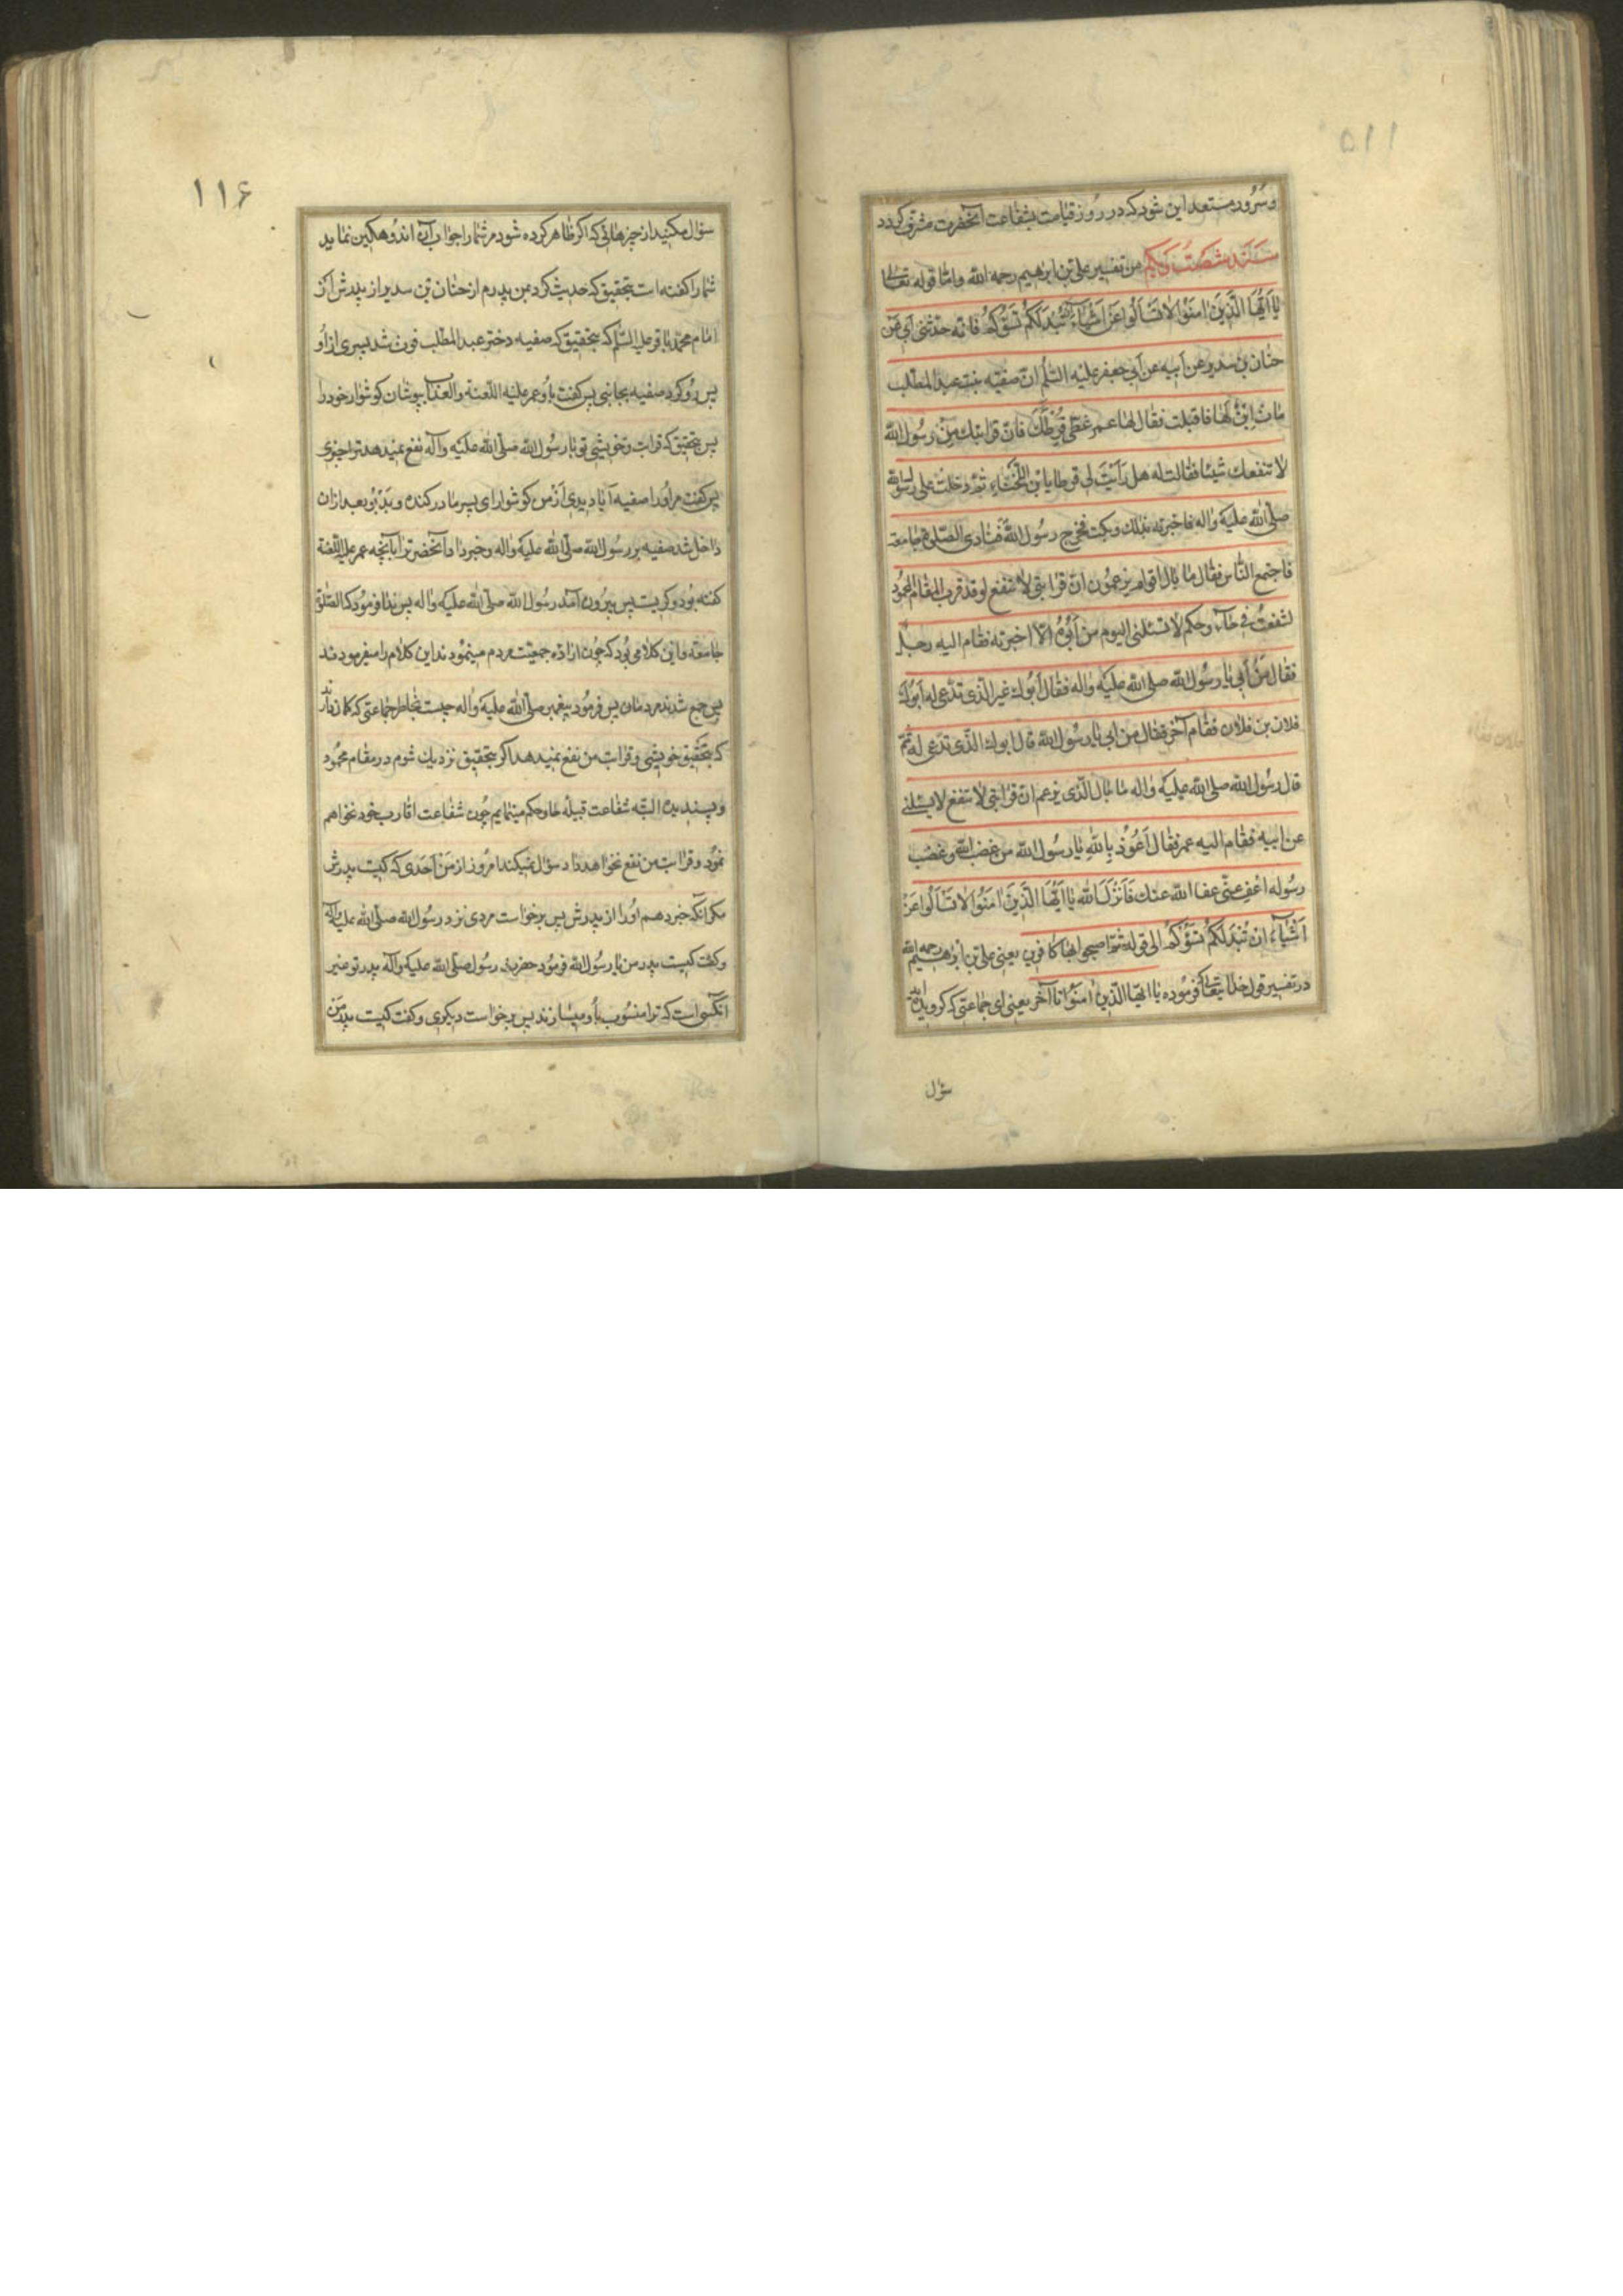 ۵۱۱
و سرور مستعد این شود که در روز قیامت بشفاعت آنحضرت مشرّف کردد
سَنَد شصت و یکم من تفسیر علی بن ابرهیم رحمه الله و امّا قوله تعالی
یٰا اَیُّهَا الَّذینَ اٰمَنُوا لاٰ تَسْاَلُوا عَنْ اَشْیٰاءَ اِن تُبْدَ لَکُمْ تَسُؤْکُمْ فانّه حدّثنی اَبی عَنْ
حنان بن سدیر عن اَبیه عن اَبی جعفر علیه السّلٰم انّ صفیّه بنت عبد المطّلب
مات اِبنٌ لها فاقبلت فقال لها عمر غطّی قُرْطَکِ فانّ قرابتک مِنْ رسُول الله
لا تنفعک شیئا فقالت له هل رَاَیتَ لی قرطا یا بْن اللّخناء ثمّ دخلت علی رسول الله
صلّی الله علیه و اٰله فاخبرته بذلک و بکت فخرج رسُول الله فنادی الصّلوة جامعة
فاجتمع النّاس فقال ما بال اقوام یزعمُون انّ قرابتی لا تنفع لو قد قرب المقام المحمُود
لشفعتُ فی حاء و حکم لا تسئلنی الیوم مَنْ اَبُوهُ الّا اخبرته فقام الیه رجل
فقال مَنْ اَبی یا رسُول الله صلی الله علیه و اٰله فقال اَبُوک غیر الّذی تدّعی له اَبُوکَ
فلان بن فلان فقام آخر فقال من ابی یا رسُول الله قال ابوک الّذی تدّعی له ثمّ
قال رسُول الله صلی الله علیه و اٰله ما بال الّذی یزعم انّ قرابتی لا تنفع لا یسئلنی
عن ابیه فقام الیه عمر فقال اَعُوذ بِاللهِ یا رسُول الله من غضب الله و غضب
رسُوله اعف عنّی عفا الله عنک فَاَنْزَلَ الله یٰا اَیُّهَا الَّذینَ اٰمَنُوا لاٰ تَسْاَلُوا عَنْ
اَشْیٰاءَ ان تُبْدَ لَکُمْ تَسُؤْکُمْ الی قوله ثمّ اصبحوا بها کافرین یعنی علی بن ابرٰهیم رحمه الله
در تفسیر قول خدایتعالی که فرموده یا ایّها الّذین اٰمنوا تا آخر یعنی ای جماعتی که کرویده اند
سؤال
۱۱۶
سؤال مکنید از چیزهائی که اکر ظاهر کرده شود مر شما را جواب آن اندوهکین نماید
شما را کفته است بتحقیق که حدیث کرد بمن پدرم از حنان بن سدیر از پدرش از
امام محمّد باقر علیه السّلم که بتحقیق که صفیه دختر عبد المطّلب فوت شد پسری از او
پس رُو کرد صفیه بجانبی پس کفت باُو عمر علیه اللّعنة والعذاب بپوشان کوشوار خود را
پس بتحقیق که قرابت و خویشی تو با رسُول الله صلّی الله علیه و آله نفع نمیدهد ترا چیزی
پس کفت مر اُو را صفیه آیا دیدی از من کوشوار ای پسر مادر کنده و بَدْ بُو بعد از ان
داخل شد صفیه بر رسُول الله صلّی الله علیه و اٰله و خبر داد آنحضرت را بآنچه عمر علیه اللّعنة
کفته بُود و کریست پس بیرُون آمد رسُول الله صلّی الله علیه و اٰله پس ندا فرمُود که الصّلٰوة
جامعة و این کلامی بُود که چون ارادهٔ جمعیّت مردم مینمُودند این کلام را میفرمودند
پس جمع شدند مردمان پس فرمُود پیغمبر صلّی الله علیه و اٰله چیست بخاطر جماعتی که کمان دارند
که بتحقیق خویشی و قرابت من نفع نمیدهد اکر بتحقیق نزدیک شوم در مقام محمُود
و پسندیده البتّه شفاعت قبیله حا و حکم مینمایم چُون شفاعت اقارب خود نخواهم
نمُود و قرابت من نفع نخواهد داد سؤال نمیکند امرُوز از مَن اَحَدی که کیست پدرش
مکر انکه خبر دهم اُو را از پدرش پس برخواست مردی نزد رسُول الله صلّی الله علیه و اٰله
و کفت کیست پدر من یا رسُول الله فرمُود حضرت رسُول صلّی الله علیه و آله پدر تو غیر
انکسی است که ترا منسُوب باُو میسازند پس برخواست دیکری و کفت کیست پدر من